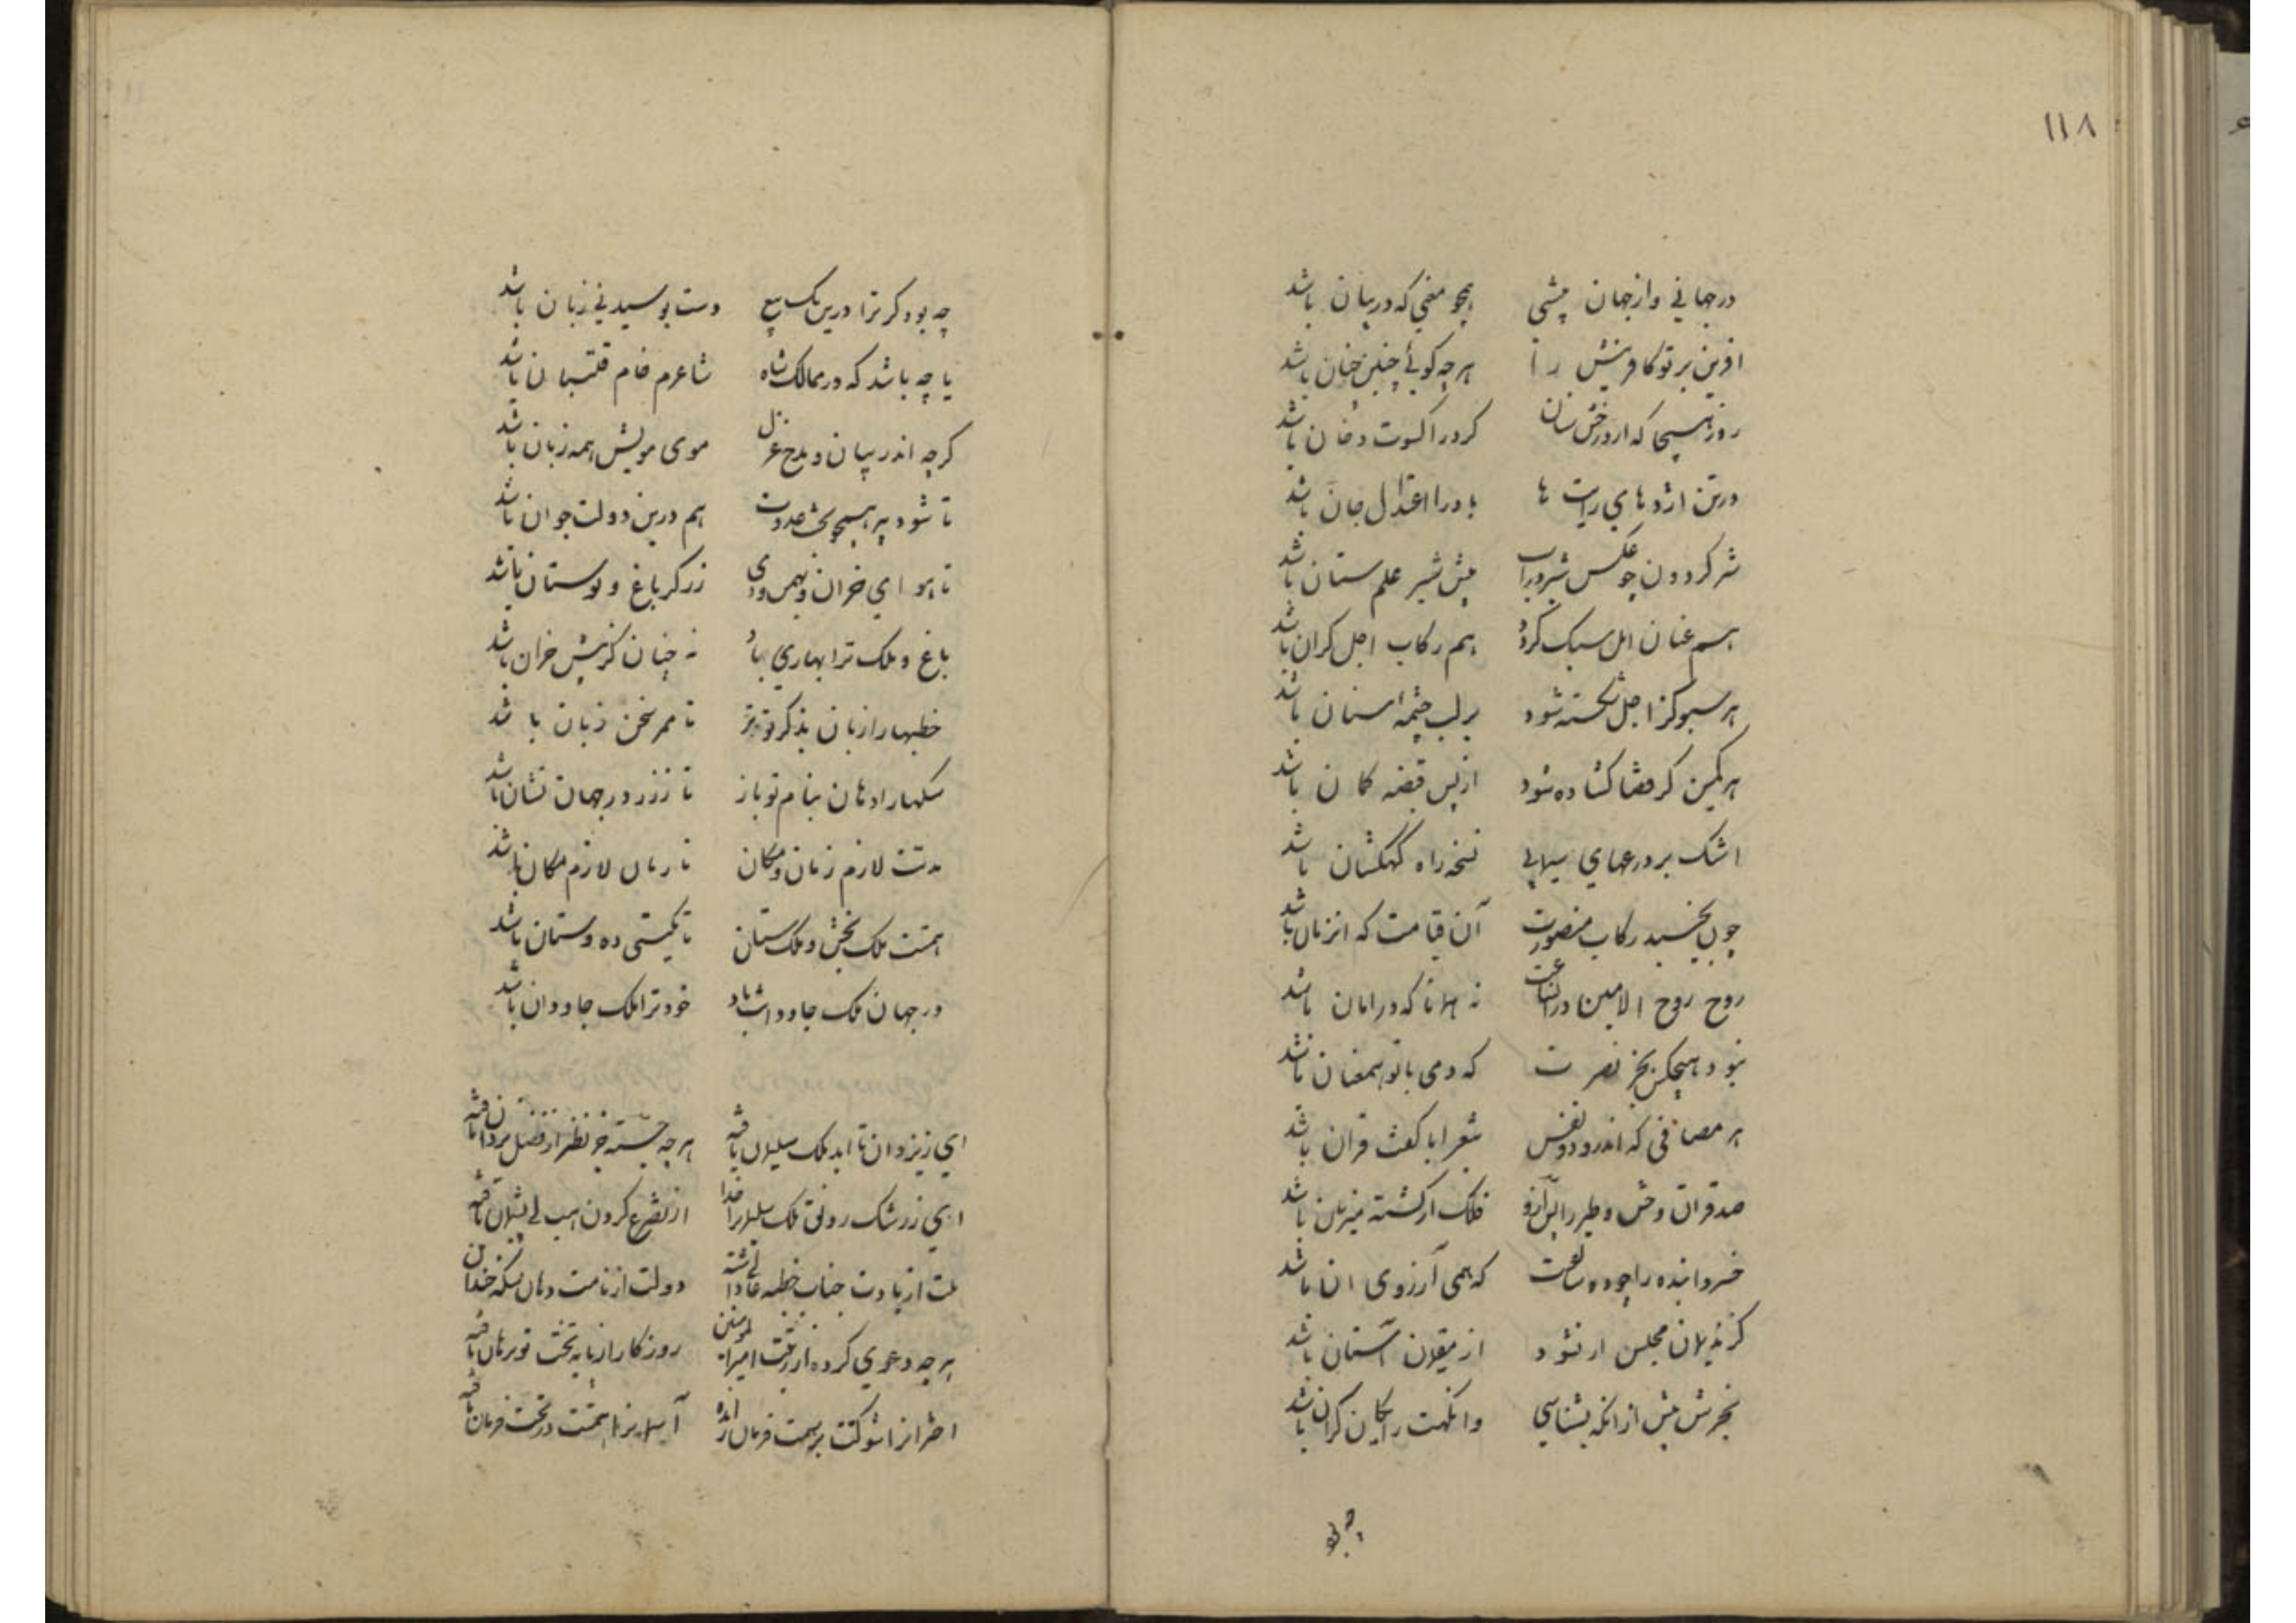 ۱۱۸
در جهانی و از جهان پیشی همچو معنی که در بیان باشد
افرین بر تو کافرینش را هر چه کوئی چنین چنان باشد
روز هیجا که از درخش سنان کرد را کسوت دخان باشد
در تن اژدهای رایت ها باد را اعتدال جان باشد
شیر کردون چو عکس شیر در آب پیش شیر علم ستان باشد
هم عنان امل سبک کردد هم رکاب اجل کران باشد
هر سبو کز اجل شکسته شود بر لب چشمهٔ سنان باشد
هر کمین کز قضا کشاده شود از پس قبضه کمان باشد
اشک بر درعهای سیمابی نسخه راه کهکشان باشد
چون بجنبد رکاب منصورت آن قیامت که انزمان باشد
روح روح الامین در انساعت نه همانا که در امان باشد
نبود هیچکس بجز نصرت که دمی با تو همعنان باشد
هر مصافی که اندرو دو نفس تیغ را با کفت قران باشد
صد قران وحش و طیر را پس از او فلک از کشته میزبان باشد
خسروا بنده را چو ده سالست که همی آرزوی ان باشد
کز ندیمان مجلس ار نشود از مقیمان آستان باشد
بخرش پیش از انکه بشناسی وانکهت رایکان کران باشد
چه بود
چه بود کر ترا درین یک بیع دست بوسیدنی زبان باشد
یا چه باشد که در ممالک شاه شاعرم خام قلتبان باشد
کرچه اندر بیان و مدح غزل موی مویش همه زبان باشد
تا شود پیر همچو بخت عدوت هم درین دولت جوان باشد
تا هوای خزان و بهمن و دی زرکر باغ و بوستان باشد
باغ و ملک ترا بهاری باد نه چنان کز پیش خزان باشد
خطبها را زبان بذکر تو تر تا ممر سخن زبان باشد
سکها را دهان بنام تو باز تا ز زر در جهان نشان باشد
مدتت لازم زمان و مکان تا زمان لازم مکان باشد
همتت ملک بخش و ملک ستان تا بکیتی ده و ستان باشد
در جهان ملک جاودانت باد خود ترا ملک جاودان باشد
ای ز یزدان تا ابد ملک سلیمان یافته هر چه جسته جز نظیر از فضل یزدان یافته
ای ز رشک رونق ملک سلیمان را خدا از تضرع کردن پشیمان یافته
ملت از یادت جناب خطبه عالی داشته دولت از نامت دهان سکه خندان
هر چه دعوی کرده از رتبت امیرالمؤمنین روزکار از پایه تخت تو برهان یافته
اختران را شوکتت بر سمت فرمان رانده آسمان را همتت در تحت فرمان یافته